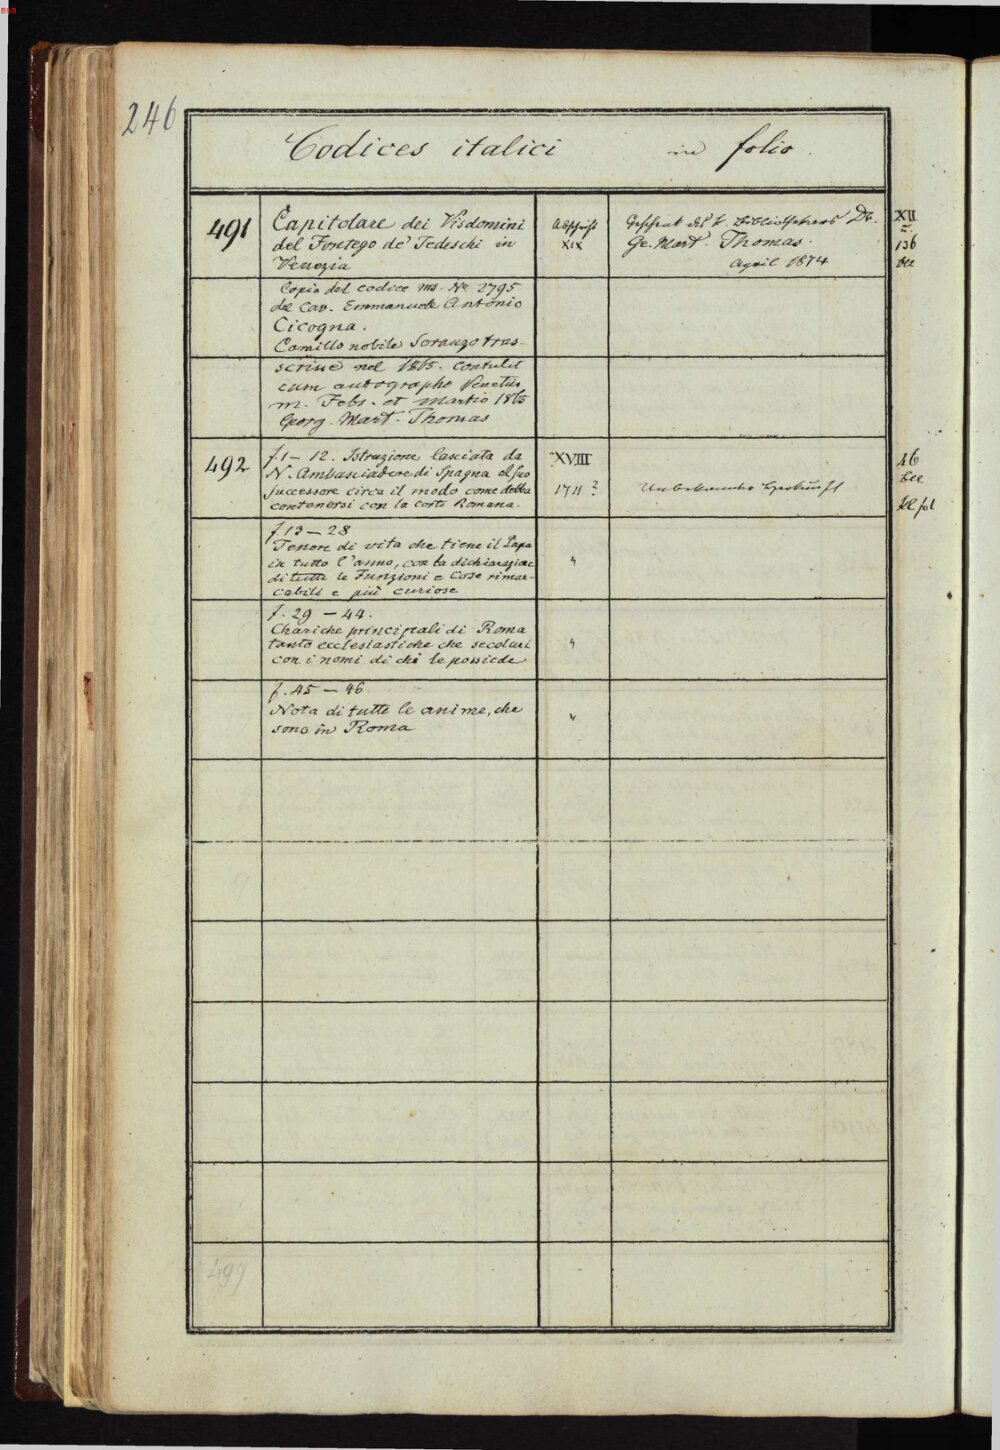 246
Codices italici in folio.
491
Capitolare dei Visdomini
del Fontego de' Tedeschi in
Venezia
Abschrift
XIX
Geschenk des k. Bibliothekars Dr.
Ge. Mart. Thomas.
April 1874
XII
u.
136
Copia del codice ms. No 2795
del Cav. Emmanuele Antonio
Cicogna.
Camillo nobile Soranzo tras-
scrisse nel 1865. Contulit
cum autographo Venetiis
m. Febr. et Martio 1865
Georg. Mart. Thomas
492
f. 1 — 12. Istruzione lasciata da
N. Ambasciadore di Spagna al suo
successore circa il modo come debba
contenersi con la corte Romana.
XVIII
1711?
Unbekannte Herkunft
46
f. 13 — 28
Tenore di vita che tiene il Papa
in tutto l'anno, con la dichiarazione
di tutte le Funzioni e Cose rimar-
cabili e più curiose
"
f. 29 — 44.
Chariche principali di Roma
tanto ecclesiastiche che secolari
con i nomi di chi le possiede
"
f. 45 — 46
Nota di tutte le anime, che
sono in Roma
"